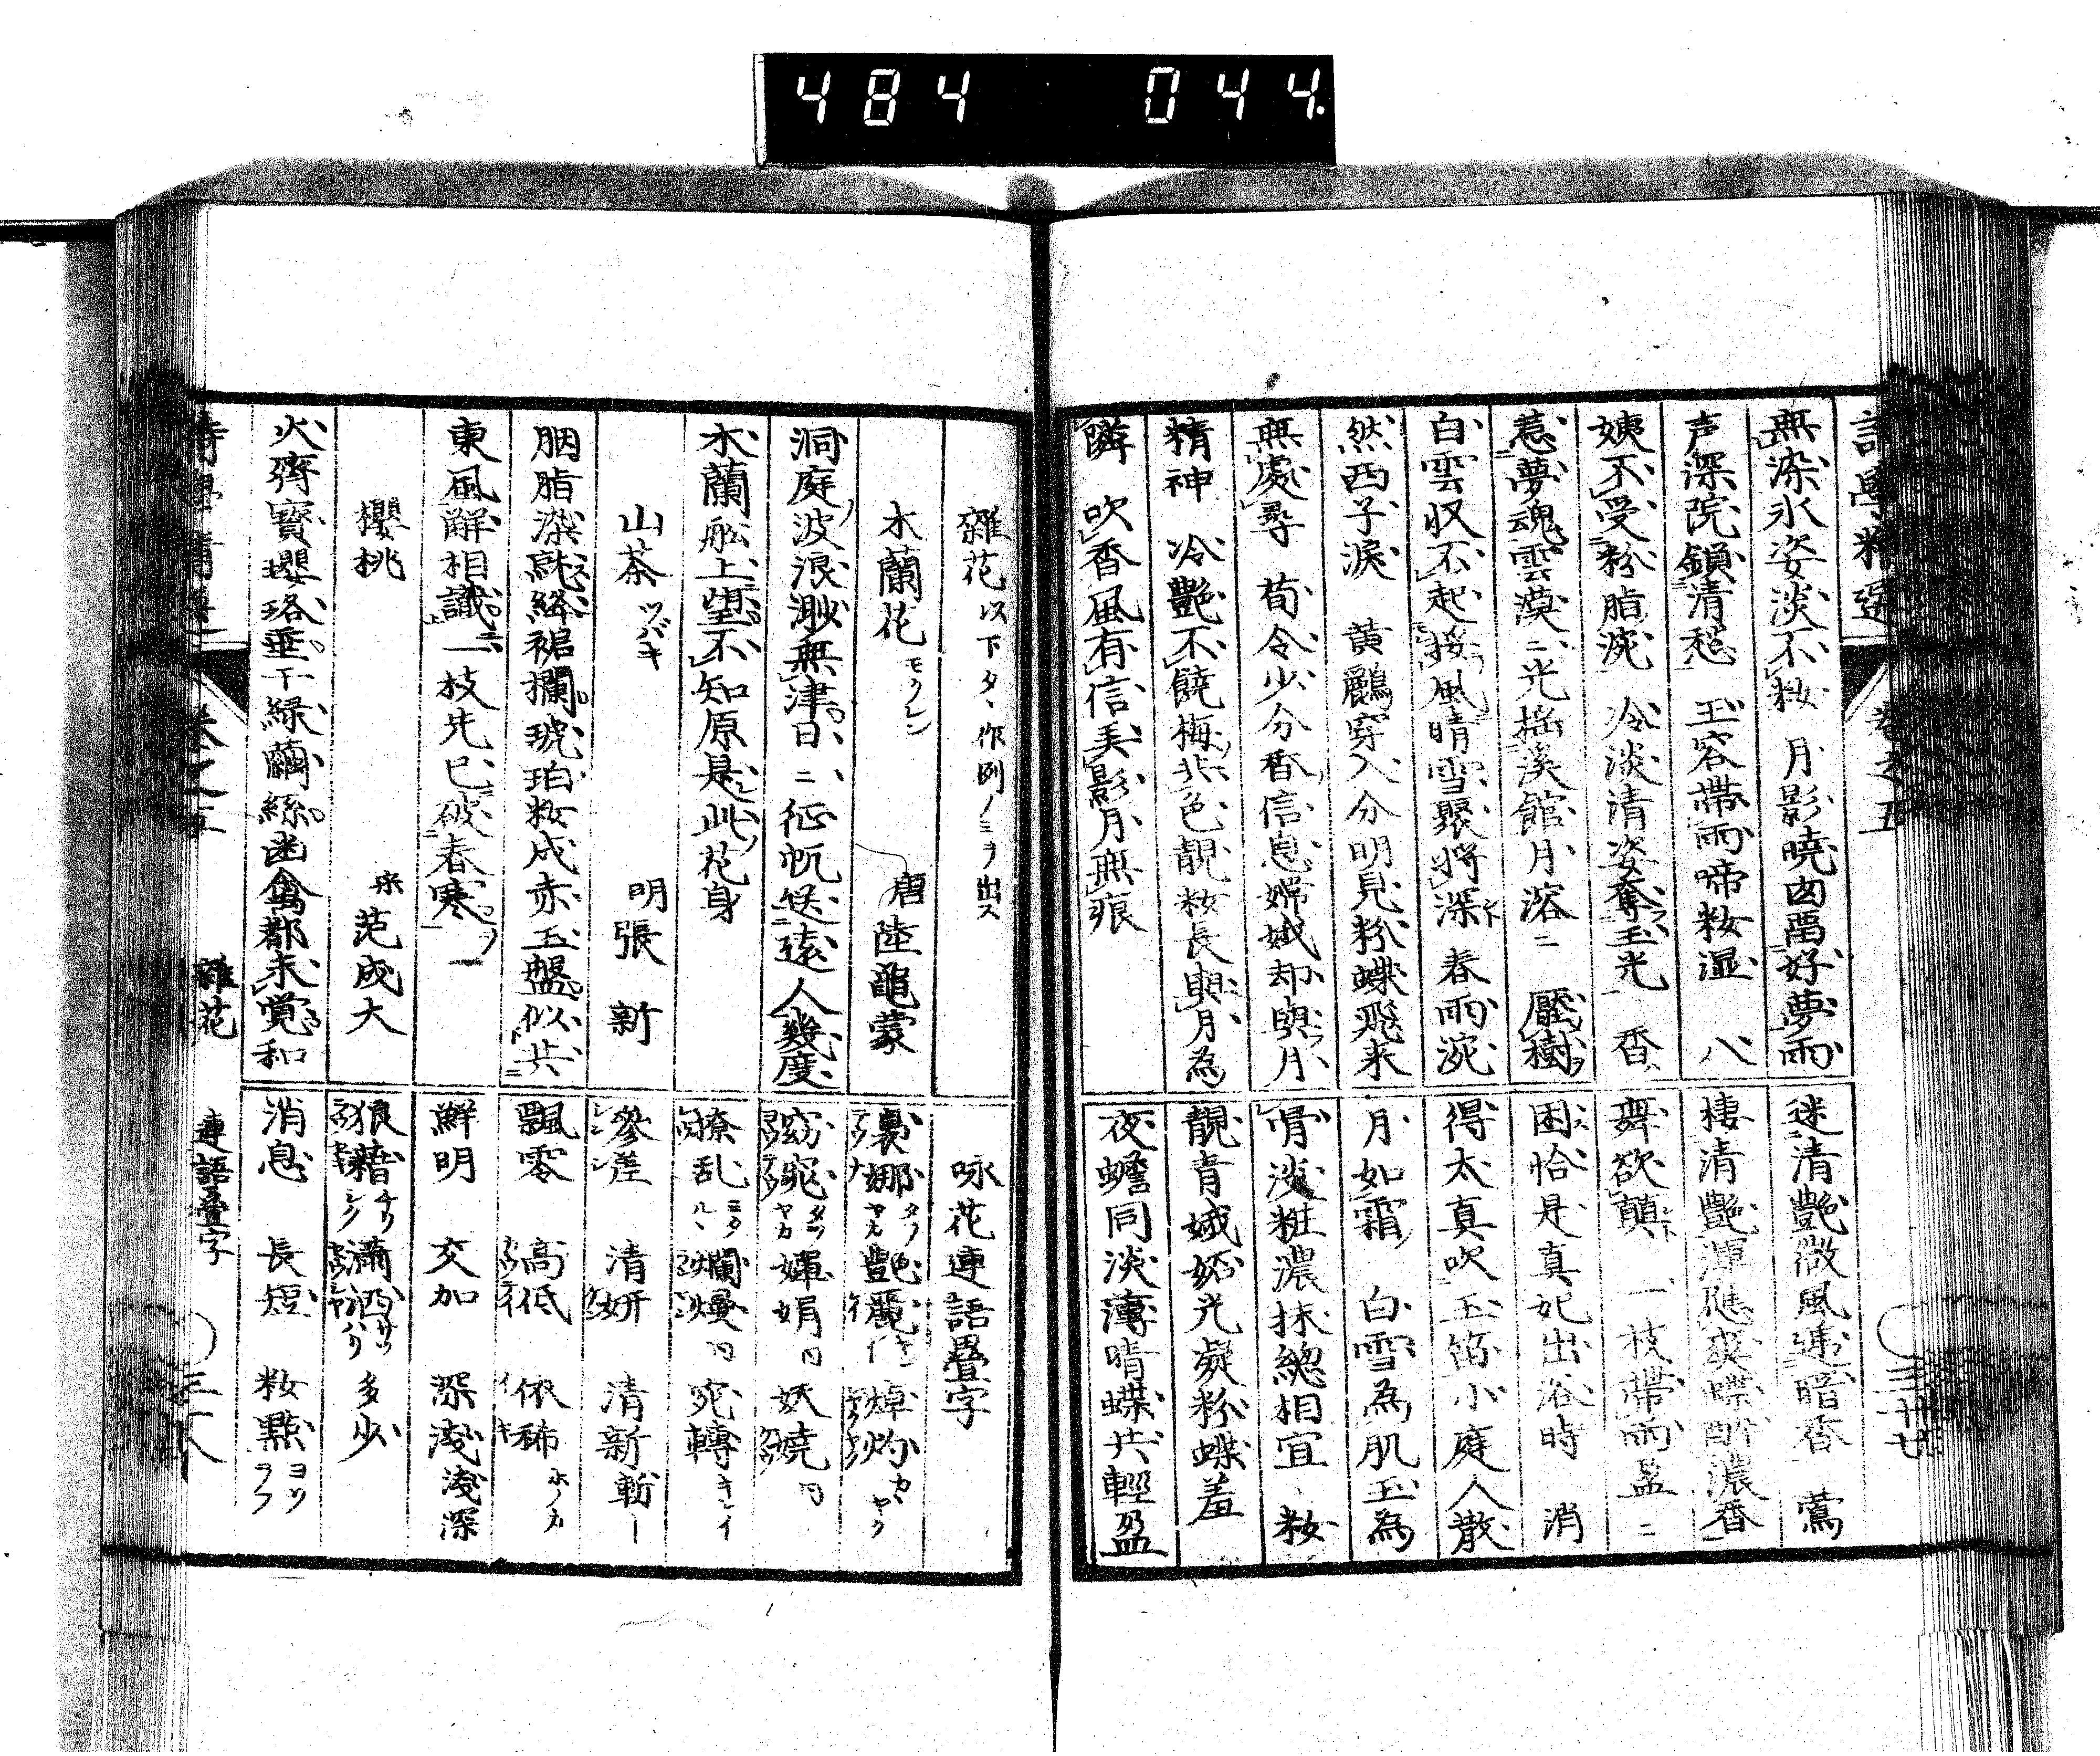 484 044
詩學精選 卷之五
無染氷姿淡不粧 月影曉因寓好夢雨
声深院鎖清愁 玉容帶雨啼粧湿 八
姨不受粉脂涴 冷淡清姿奪玉光 香
惹夢魂雲漠ニ光揺溪館月溶ニ 壓樹
白雲収不起接風晴雪聚將深 春雨涴
然西子淚 黄鸝穿入分明見粉蝶飛来
無處尋 荀令少分香信息嫦娥却與月
精神 冷艷不饒梅共色靚粧長與月為
隣 吹香風有信美影月無痕
迷清艷微風逓暗香 鶯
棲清艷渾應爽蝶酔濃香
舞欲顛 一枝帶雨盈ニ
困恰是真妃出浴時 消
得太真吹玉笛小庭人散
月如霜 白雪為肌玉為
骨淡粧濃抹總相宜 粧
靚青娥妬光凝粉蝶羞
夜蟾同淡薄晴蝶共輕盈
三十七
雜花 以下タヽ作例ノミヲ出ス
木蘭花 モクレン 唐 陸龜蒙
洞庭波浪渺無津日ニ征帆送遠人幾度
木蘭舩上望不知原是此花身
山茶 ツバキ 明 張新
胭脂染就絳裾襴琥珀粧成赤玉盤似共
東風解相識一枝先已破春寒
櫻桃 宋 范成大
火齊寶瓔珞垂于緑繭絲幽禽都未覚和
咏花連語疊字
裊娜 艶麗 焯灼 カヽヤク
窈窕 嬋娟 妖嬈
撩乱 爛熳 宛轉
參差 清妍 清新 斬ー
飄零 高低 依稀 ホノカ
鮮明 交加 深淺淺深
狼藉 瀟洒 多少
消息 長短 粧點 ヨソヲフ
詩學精選 卷之五 雜花 連語疊字 三十八